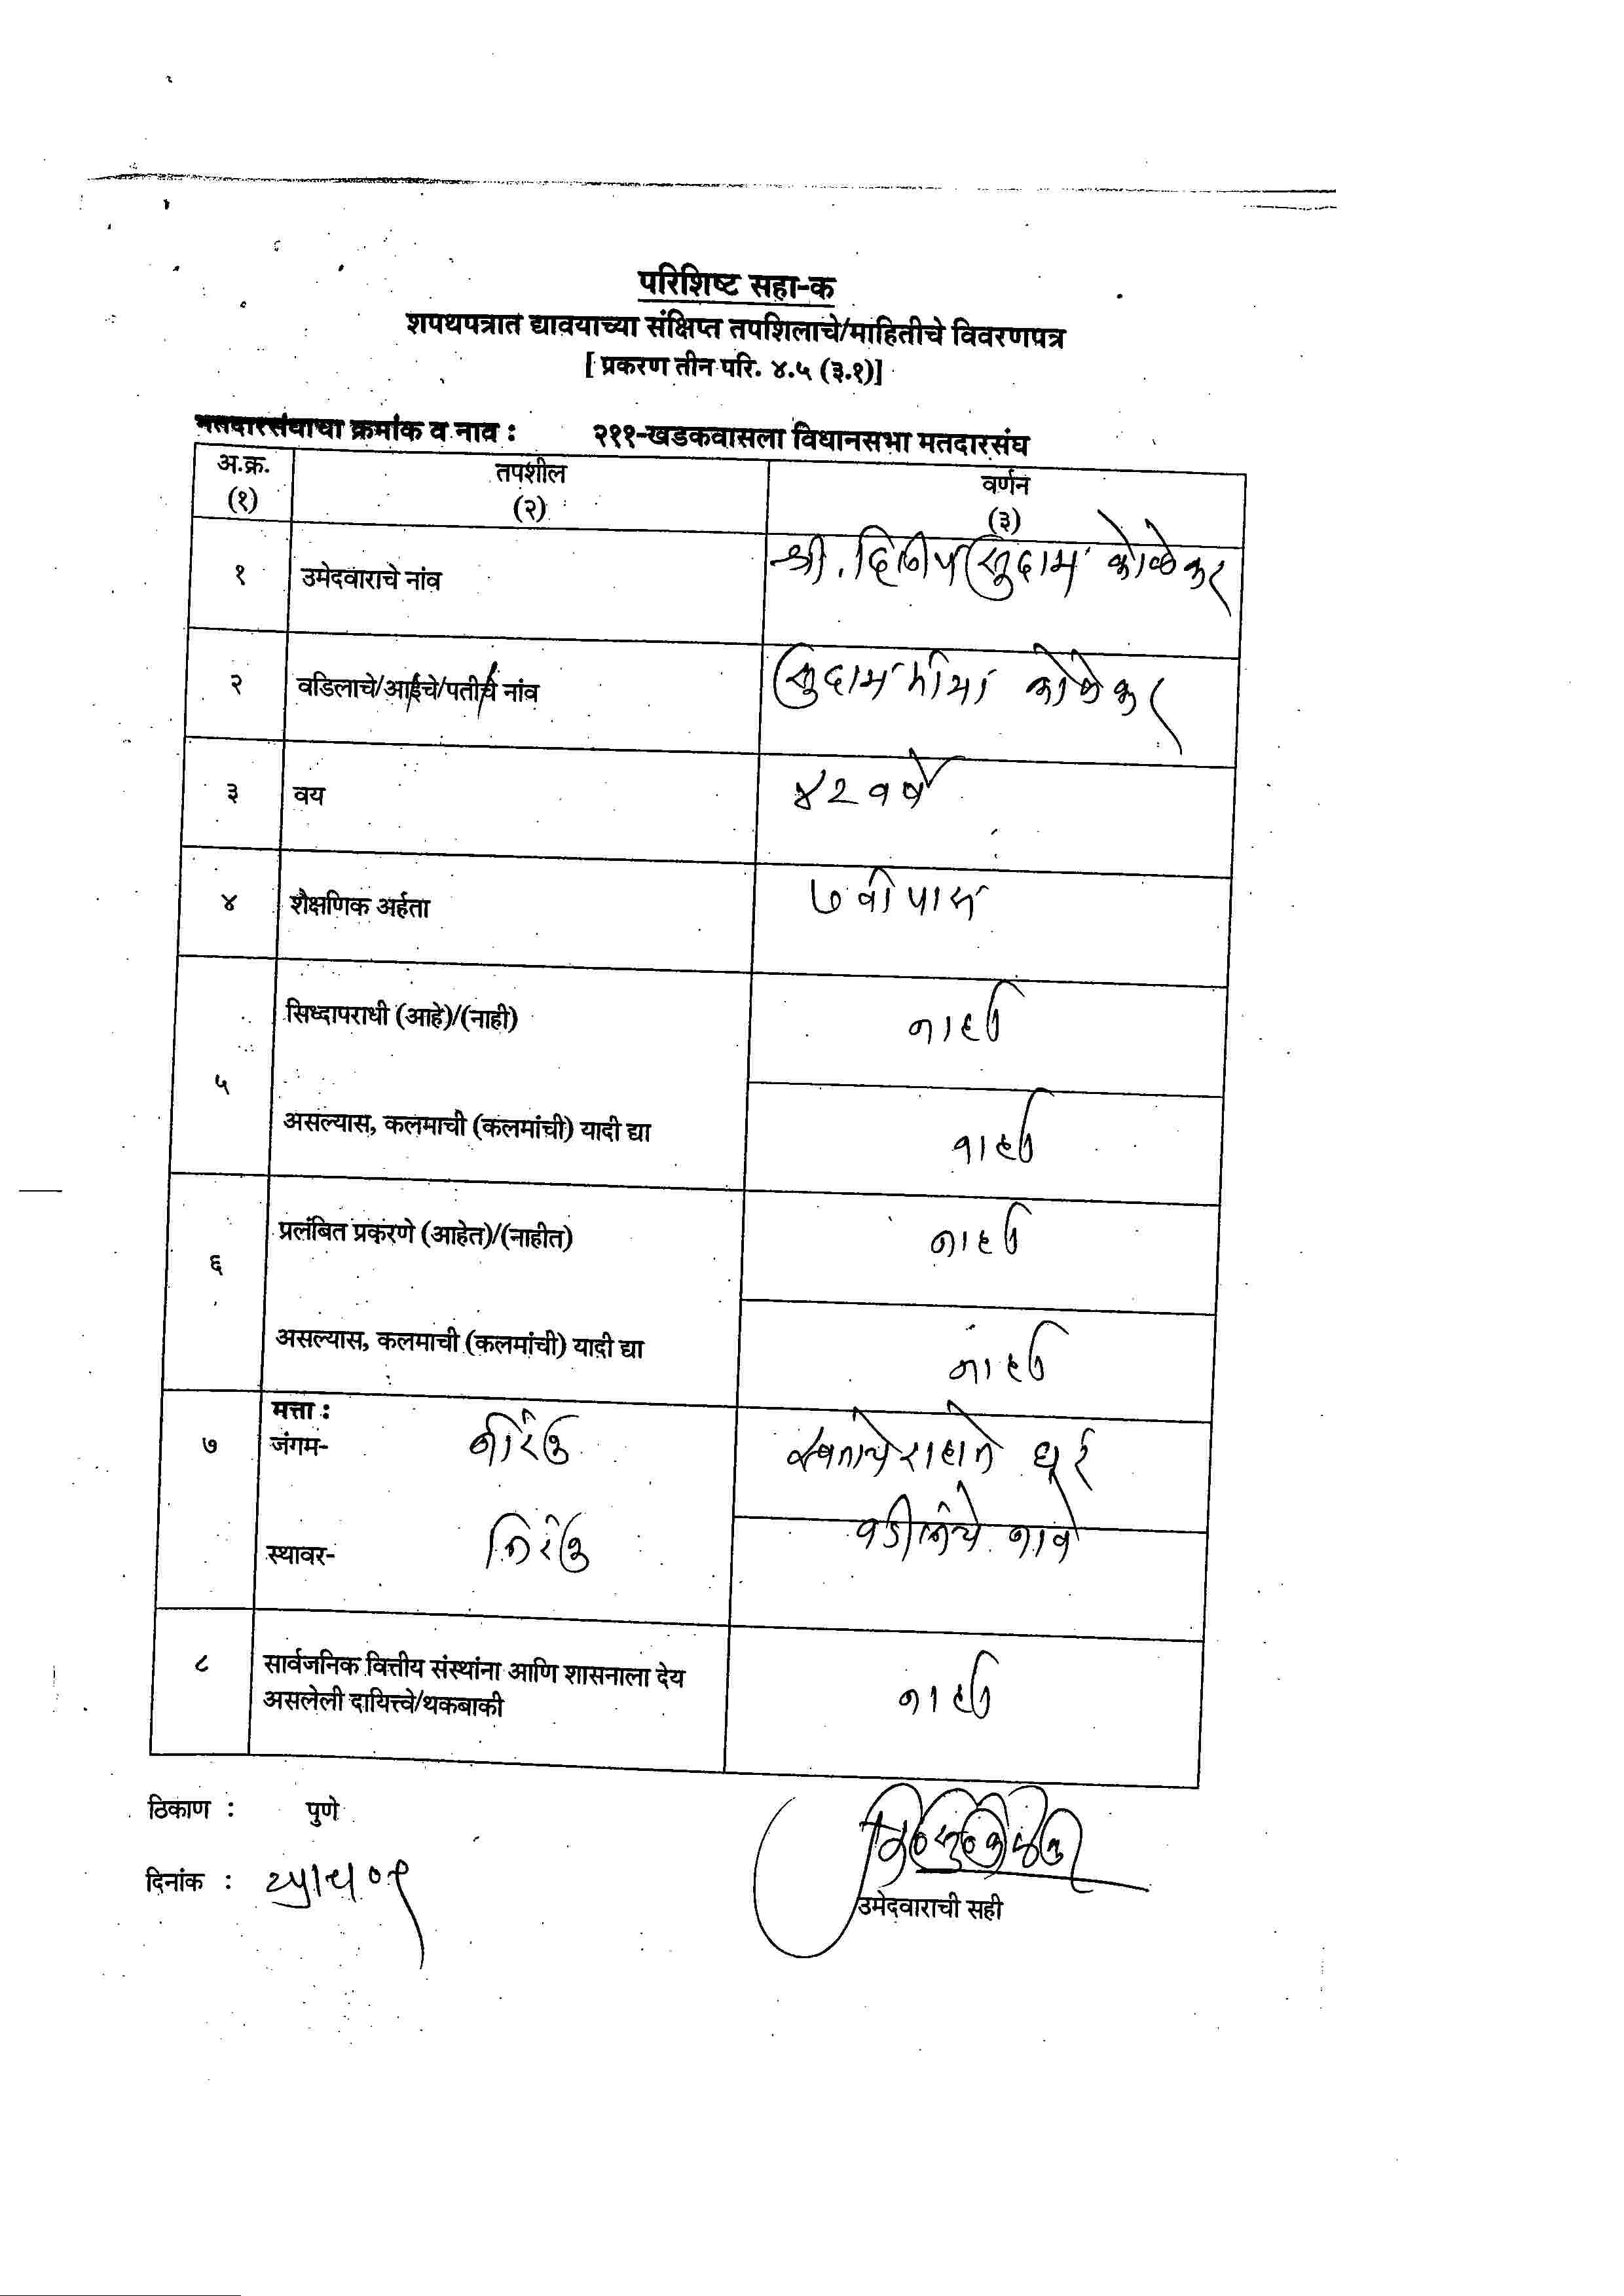 परिशिष्ट सहा-क
शपथपत्रात द्यावयाच्या संक्षिप्त तपशिलाचे/माहितीचे विवरणपत्र
[ प्रकरण तीन परि. ४.५ (३.१)]
मतदारसंघाचा क्रमांक व नाव : २११-खडकवासला विधानसभा मतदारसंघ
अ.क्र. तपशील वर्णन
(१) (२) (३)
१ उमेदवाराचे नांव श्री. दिलीप सुदाम कोळेकर
२ वडिलाचे/आईचे/पतीचे नांव सुदाम कोळेकर
३ वय ४२ वर्षे
४ शैक्षणिक अर्हता ७ वी पास
सिध्दापराधी (आहे)/(नाही) नाही
५
असल्यास, कलमाची (कलमांची) यादी द्या नाही
प्रलंबित प्रकरणे (आहेत)/(नाहीत) नाही
६
असल्यास, कलमाची (कलमांची) यादी द्या नाही
मत्ता :
७ जंगम- नीरंक स्वताचे राहाते घर
वडीलांचे नावे
स्थावर- निरंक
८ सार्वजनिक वित्तीय संस्थांना आणि शासनाला देय नाही
असलेली दायित्त्वे/थकबाकी
ठिकाण : पुणे
दिनांक :
उमेदवाराची सही